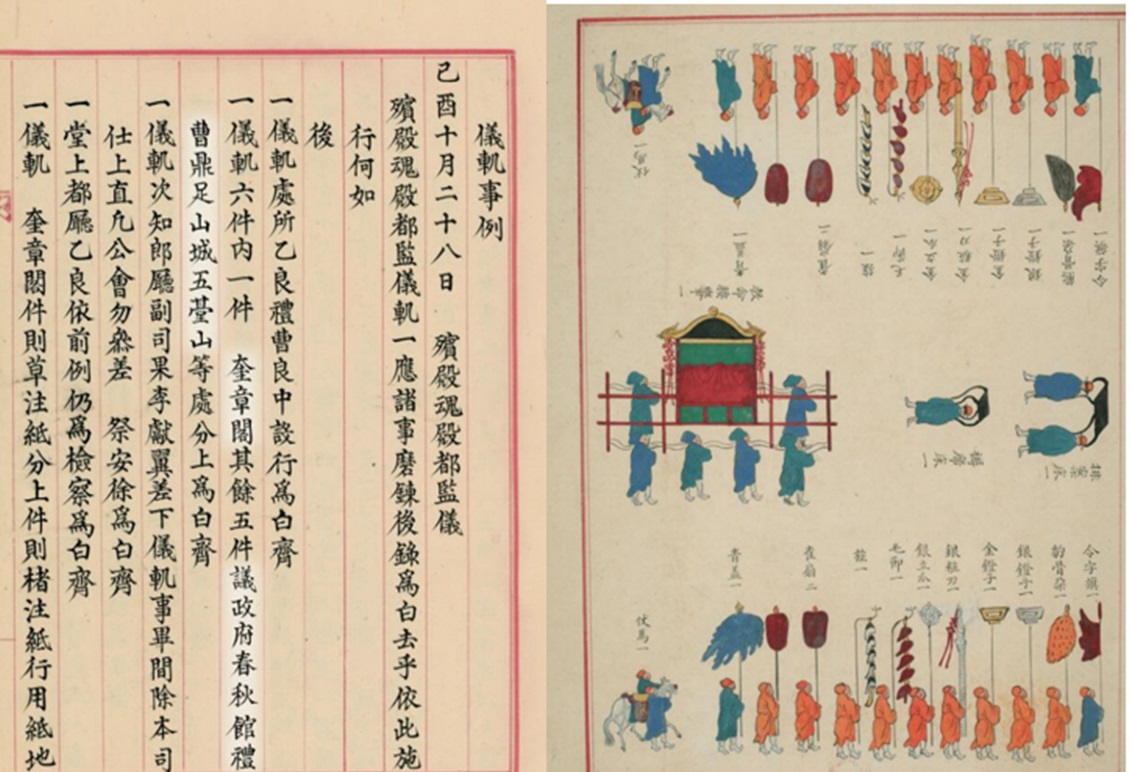 儀軌事例
己酉十月二十八日 殯殿魂殿都監儀
殯殿魂殿都監儀軌一應諸事磨鍊後錄爲白去乎依此施
行何如
後
一儀軌處所乙良禮曹良中設行爲白齊
一儀軌六件內一件 奎章閣其餘五件議政府春秋館禮
曹鼎足山城五臺山等處分上爲白齊
一儀軌次知郎廳副司果李獻翼差下儀軌事畢間除本司
仕上直凡公會勿叅差 祭安徐爲白齊
一堂上都廳乙良依前例仍爲檢察爲白齊
一儀軌 奎章閣件則草注紙分上件則楮注紙行用紙地
令字旗一
熊骨朶一
銀鐙子一
金鐙子一
金粧刀一
金立瓜一
毛節一
雀扇二
青盖一
教命腰轝一
仗馬一
排案床一
褥席床一
令字旗一
豹骨朶一
銀鐙子一
金鐙子一
銀粧刀一
銀立瓜一
毛節一
雀扇二
青盖一
仗馬一